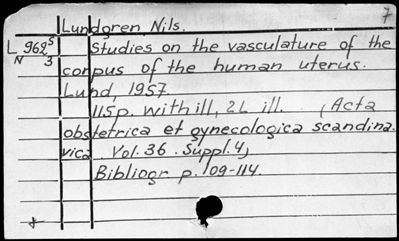 7
Lundgren Nils.
L 962⁵ Studies on the vasculature of the
N 3 corpus of the human uterus.
Lund, 1957.
115p. with ill, 2L ill. , (Acta
obstetrica et gynecologica scandina-
vica. Vol. 36. Suppl. 4)
Bibliogr p. 109-114.